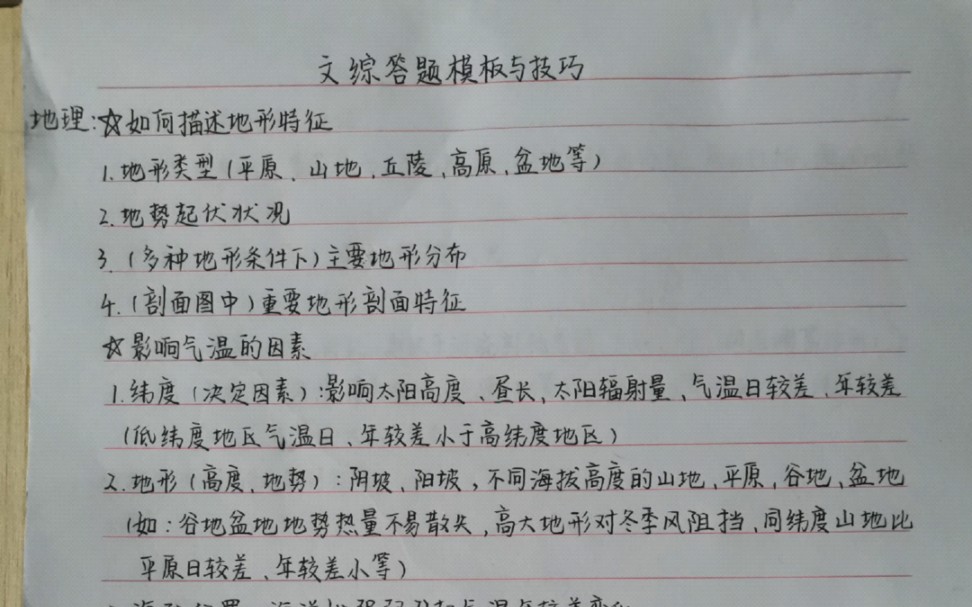 文综答题模板与技巧
地理:☆如何描述地形特征
1.地形类型(平原、山地、丘陵、高原、盆地等)
2.地势起伏状况
3.(多种地形条件下)主要地形分布
4.(剖面图中)重要地形剖面特征
☆影响气温的因素
1.纬度(决定因素):影响太阳高度、昼长、太阳辐射量、气温日较差、年较差
(低纬度地区气温日、年较差小于高纬度地区)
2.地形(高度、地势):阴坡、阳坡,不同海拔高度的山地、平原、谷地、盆地
(如:谷地盆地地势热量不易散失,高大地形对冬季风阻挡,同纬度山地比
平原日较差、年较差小等)